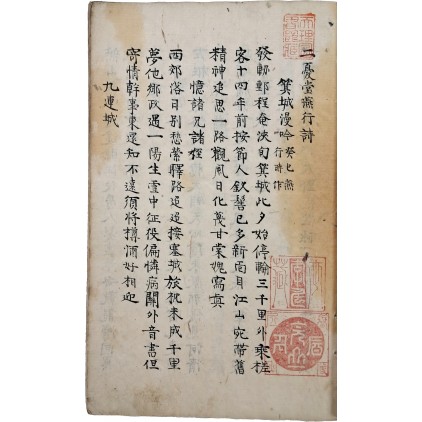 二憂堂燕行詩
箕城漫吟 癸巳燕行時作
發軔郵程奄浹旬箕城此夕始停輪三千里外乘槎
客十四年前按節人釵髻已多新面目江山宛帶舊
精神追思一路觀風日化蔑甘棠愧寫眞
憶諸兄諸侄
西郊落日別愁縈驛路迢迢接塞城旅枕未成千里
夢他鄉政遇一陽生雪中征役偏憐病關外音書但
寄情幹事東還知不遠須將樽酒好相迎
九連城